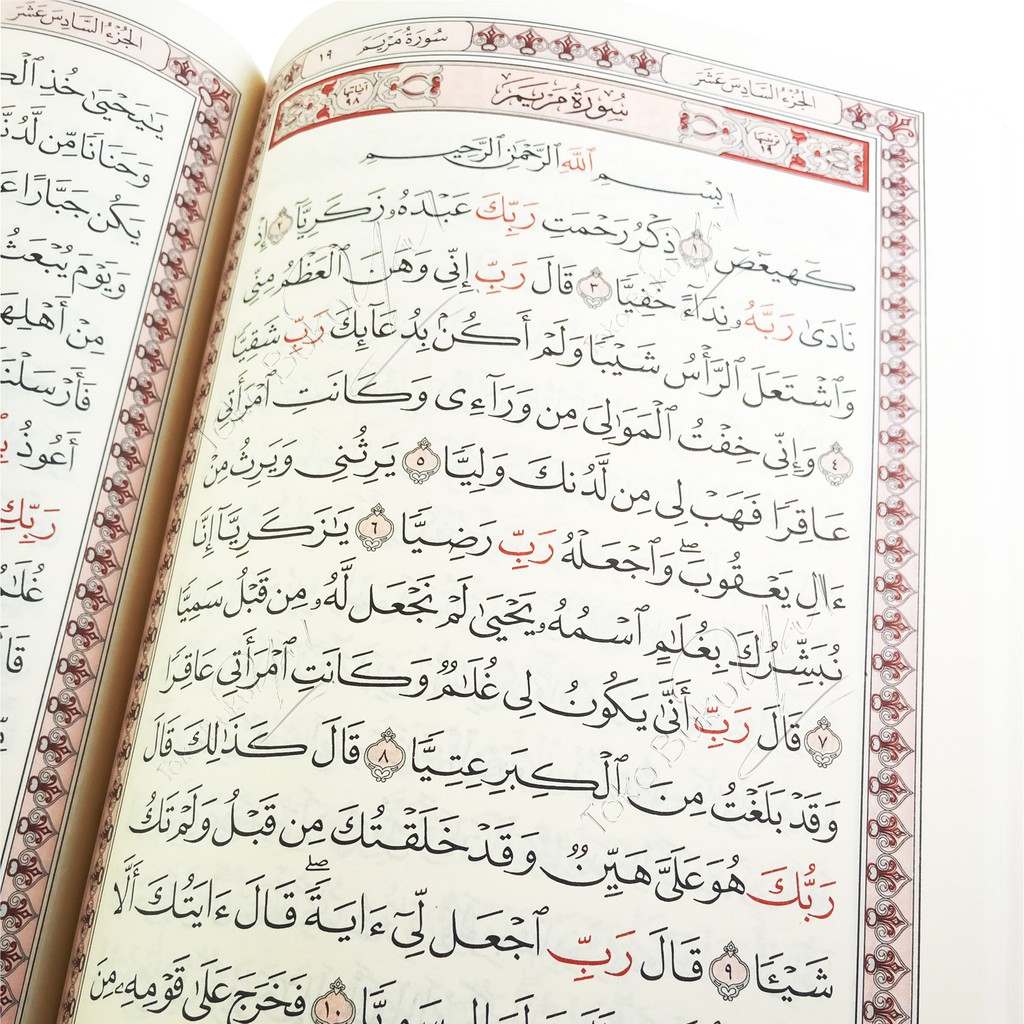 الجزء السادس عشر
سورة مريم
١٩
ترتيبها ١٩
سُورَةُ مَرْيَمَ
آياتها ٩٨
بِسْمِ ٱللَّهِ ٱلرَّحْمَٰنِ ٱلرَّحِيمِ
كٓهيعٓصٓ ١ ذِكْرُ رَحْمَتِ رَبِّكَ عَبْدَهُۥ زَكَرِيَّآ ٢ إِذْ
نَادَىٰ رَبَّهُۥ نِدَآءً خَفِيًّا ٣ قَالَ رَبِّ إِنِّى وَهَنَ ٱلْعَظْمُ مِنِّى
وَٱشْتَعَلَ ٱلرَّأْسُ شَيْبًا وَلَمْ أَكُنۢ بِدُعَآئِكَ رَبِّ شَقِيًّا
٤ وَإِنِّى خِفْتُ ٱلْمَوَٰلِىَ مِن وَرَآءِى وَكَانَتِ ٱمْرَأَتِى
عَاقِرًا فَهَبْ لِى مِن لَّدُنكَ وَلِيًّا ٥ يَرِثُنِى وَيَرِثُ مِنْ
ءَالِ يَعْقُوبَ ۖ وَٱجْعَلْهُ رَبِّ رَضِيًّا ٦ يَٰزَكَرِيَّآ إِنَّا
نُبَشِّرُكَ بِغُلَٰمٍ ٱسْمُهُۥ يَحْيَىٰ لَمْ نَجْعَل لَّهُۥ مِن قَبْلُ سَمِيًّا
٧ قَالَ رَبِّ أَنَّىٰ يَكُونُ لِى غُلَٰمٌ وَكَانَتِ ٱمْرَأَتِى عَاقِرًا
وَقَدْ بَلَغْتُ مِنَ ٱلْكِبَرِ عِتِيًّا ٨ قَالَ كَذَٰلِكَ قَالَ
رَبُّكَ هُوَ عَلَىَّ هَيِّنٌ وَقَدْ خَلَقْتُكَ مِن قَبْلُ وَلَمْ تَكُ
شَيْـًٔا ٩ قَالَ رَبِّ ٱجْعَل لِّىٓ ءَايَةً ۚ قَالَ ءَايَتُكَ أَلَّا
سَوِيًّا ١٠ فَخَرَجَ عَلَىٰ قَوْمِهِۦ مِنَ
الجزء السادس عشر
يَٰيَحْيَىٰ خُذِ
وَحَنَانًا مِّن لَّدُنَّا
يَكُن جَبَّارًا
وَيَوْمَ يُبْعَثُ
مِنْ أَهْلِهَا
فَأَرْسَلْنَآ
أَعُوذُ
رَبِّكِ
غُلَٰمٌ